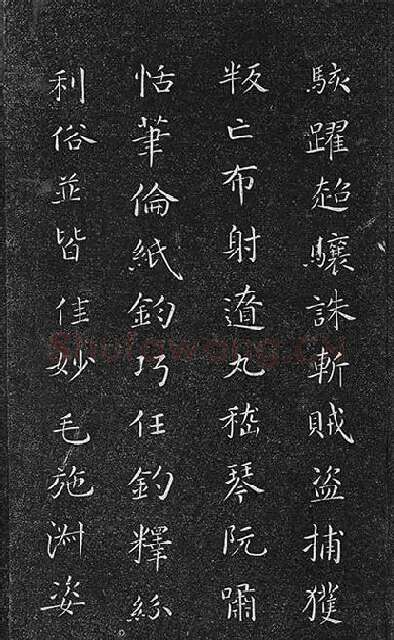 駭躍超驤誅斬賊盗捕獲
叛亡布射遼丸嵇琴阮嘯
恬筆倫紙鈞巧任釣釋紛
利俗並皆佳妙毛施淑姿